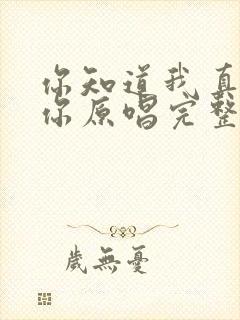 你知道我真
你原唱完整
岁無憂